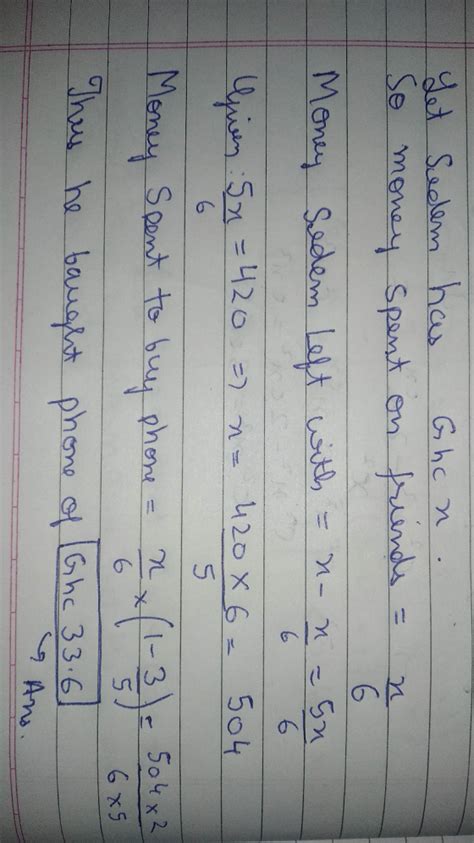 Let Sedem has Ghc x.
So money spent on friends = x/6
Money Sedem left with = x - x/6 = 5x/6
Given: 5x/6 = 420 => x = 420 × 6/5 = 504
Money Spent to buy phone = x/6 × (1 - 3/5) = 504 × 2/6 × 5
Thus he baught phone of Ghc 33.6
Ans.